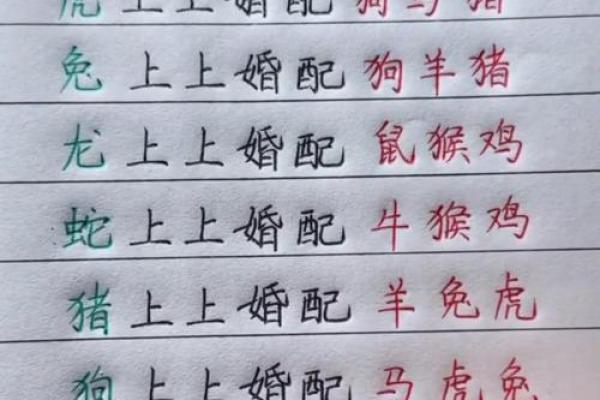 虎上上婚配狗马猪
兔上上婚配狗羊猪
龙上上婚配鼠猴鸡
蛇上上婚配牛猴鸡
猪上上婚配羊兔虎
狗上上婚配马虎兔